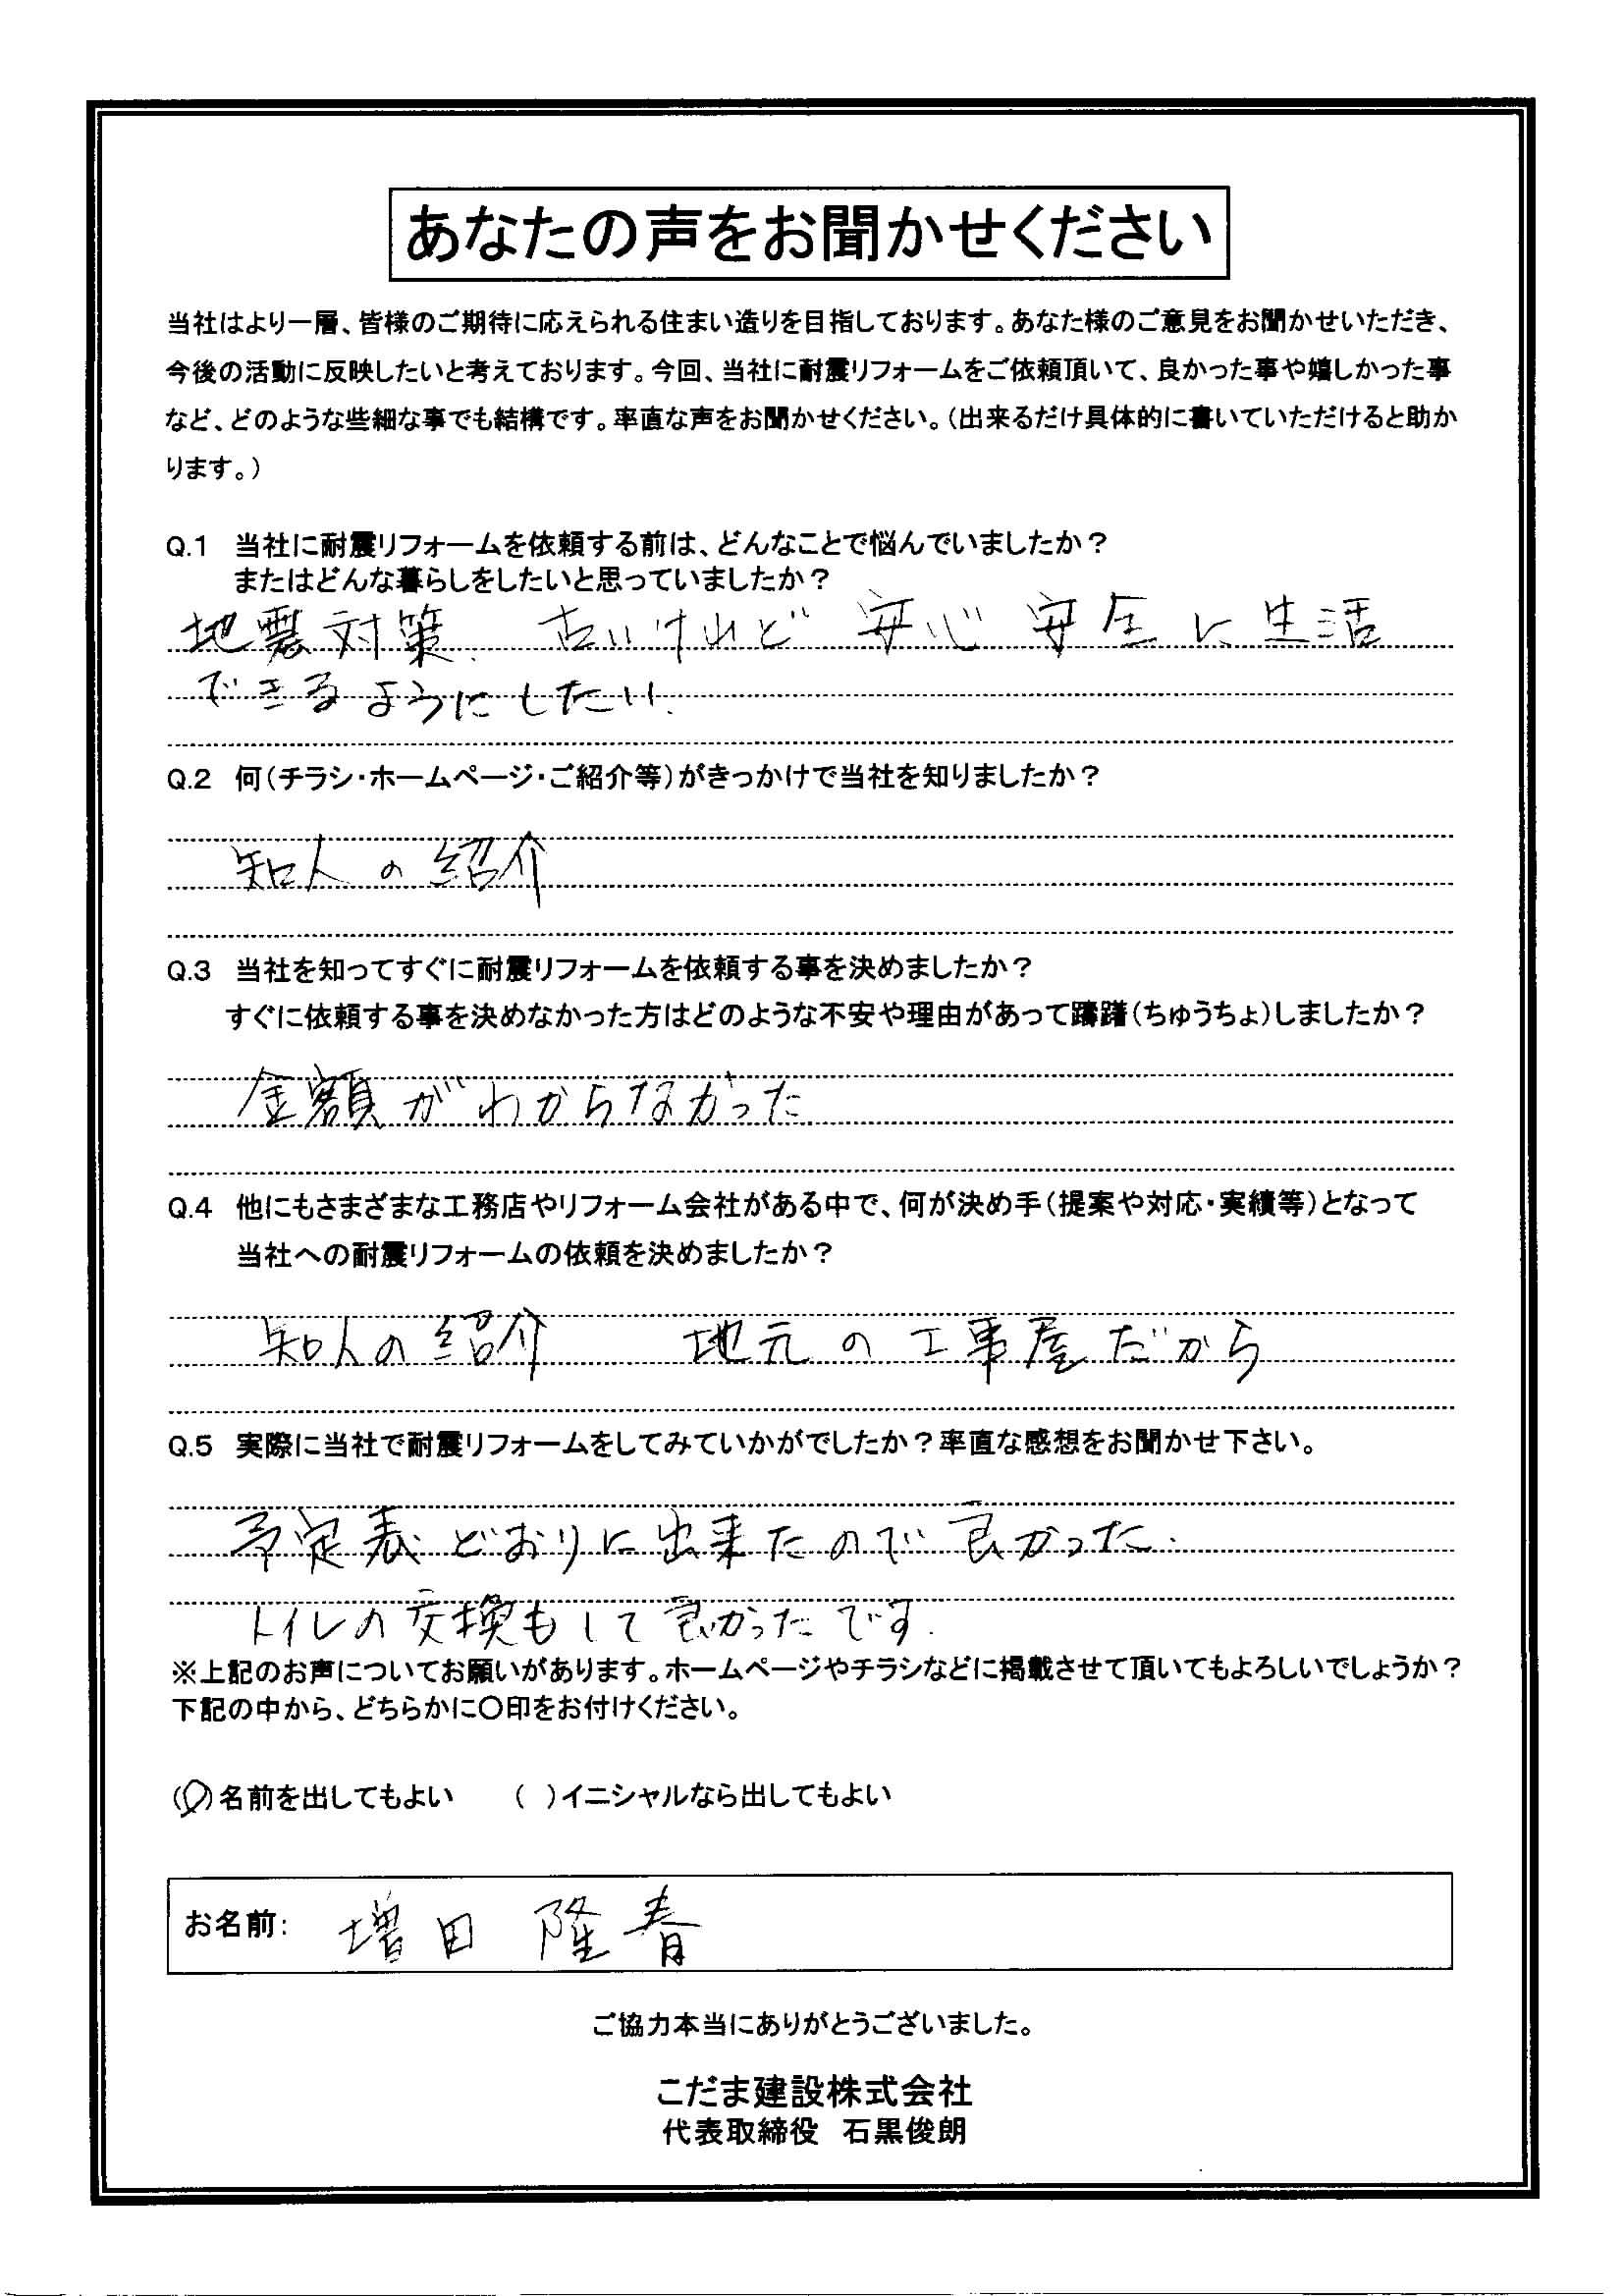 あなたの声をお聞かせください
当社はより一層、皆様のご期待に応えられる住まい造りを目指しております。あなた様のご意見をお聞かせいただき、
今後の活動に反映したいと考えております。今回、当社に耐震リフォームをご依頼頂いて、良かった事や嬉しかった事
など、どのような些細な事でも結構です。率直な声をお聞かせください。（出来るだけ具体的に書いていただけると助か
ります。）
Q.1 当社に耐震リフォームを依頼する前は、どんなことで悩んでいましたか？
またはどんな暮らしをしたいと思っていましたか？
地震対策. 古いけれど 安心 安全に生活
できるようにしたい.
Q.2 何（チラシ・ホームページ・ご紹介等）がきっかけで当社を知りましたか？
知人の紹介
Q.3 当社を知ってすぐに耐震リフォームを依頼する事を決めましたか？
すぐに依頼する事を決めなかった方はどのような不安や理由があって躊躇（ちゅうちょ）しましたか？
金額がわからなかった
Q.4 他にもさまざまな工務店やリフォーム会社がある中で、何が決め手（提案や対応・実績等）となって
当社への耐震リフォームの依頼を決めましたか？
知人の紹介 地元の工事屋だから
Q.5 実際に当社で耐震リフォームをしてみていかがでしたか？率直な感想をお聞かせ下さい。
予定表どおりに出来たので良かった.
トイレの交換もして良かったです.
※上記のお声についてお願いがあります。ホームページやチラシなどに掲載させて頂いてもよろしいでしょうか？
下記の中から、どちらかに〇印をお付けください。
（〇）名前を出してもよい （ ）イニシャルなら出してもよい
お名前： 増田 隆春
ご協力本当にありがとうございました。
こだま建設株式会社
代表取締役 石黒俊朗